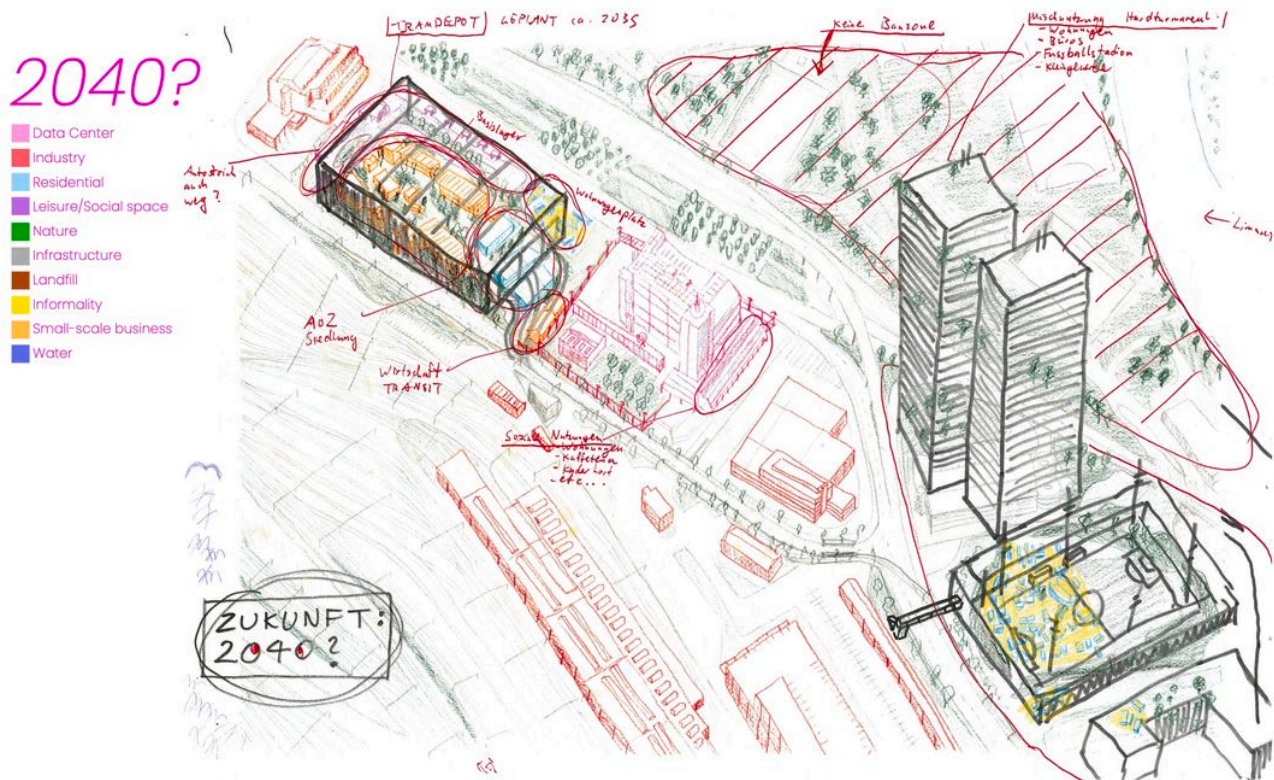 2040?
Data Center
Industry
Residential
Leisure/Social space
Nature
Infrastructure
Landfill
Informality
Small-scale business
Water
TRAMDEPOT GEPLANT ca. 2035
Keine Bauzone
Mischnutzung Hardturmareal
- Wohnungen
- Büros
- Fussballstadion
Basislager
Autostrich
auch
weg?
Wohnwagenplatz
← Limmat
AOZ
Siedlung
Wirtschaft
TRANSIT
Soziale Nutzungen
- Wohnungen
- etc...
ZUKUNFT:
2040?